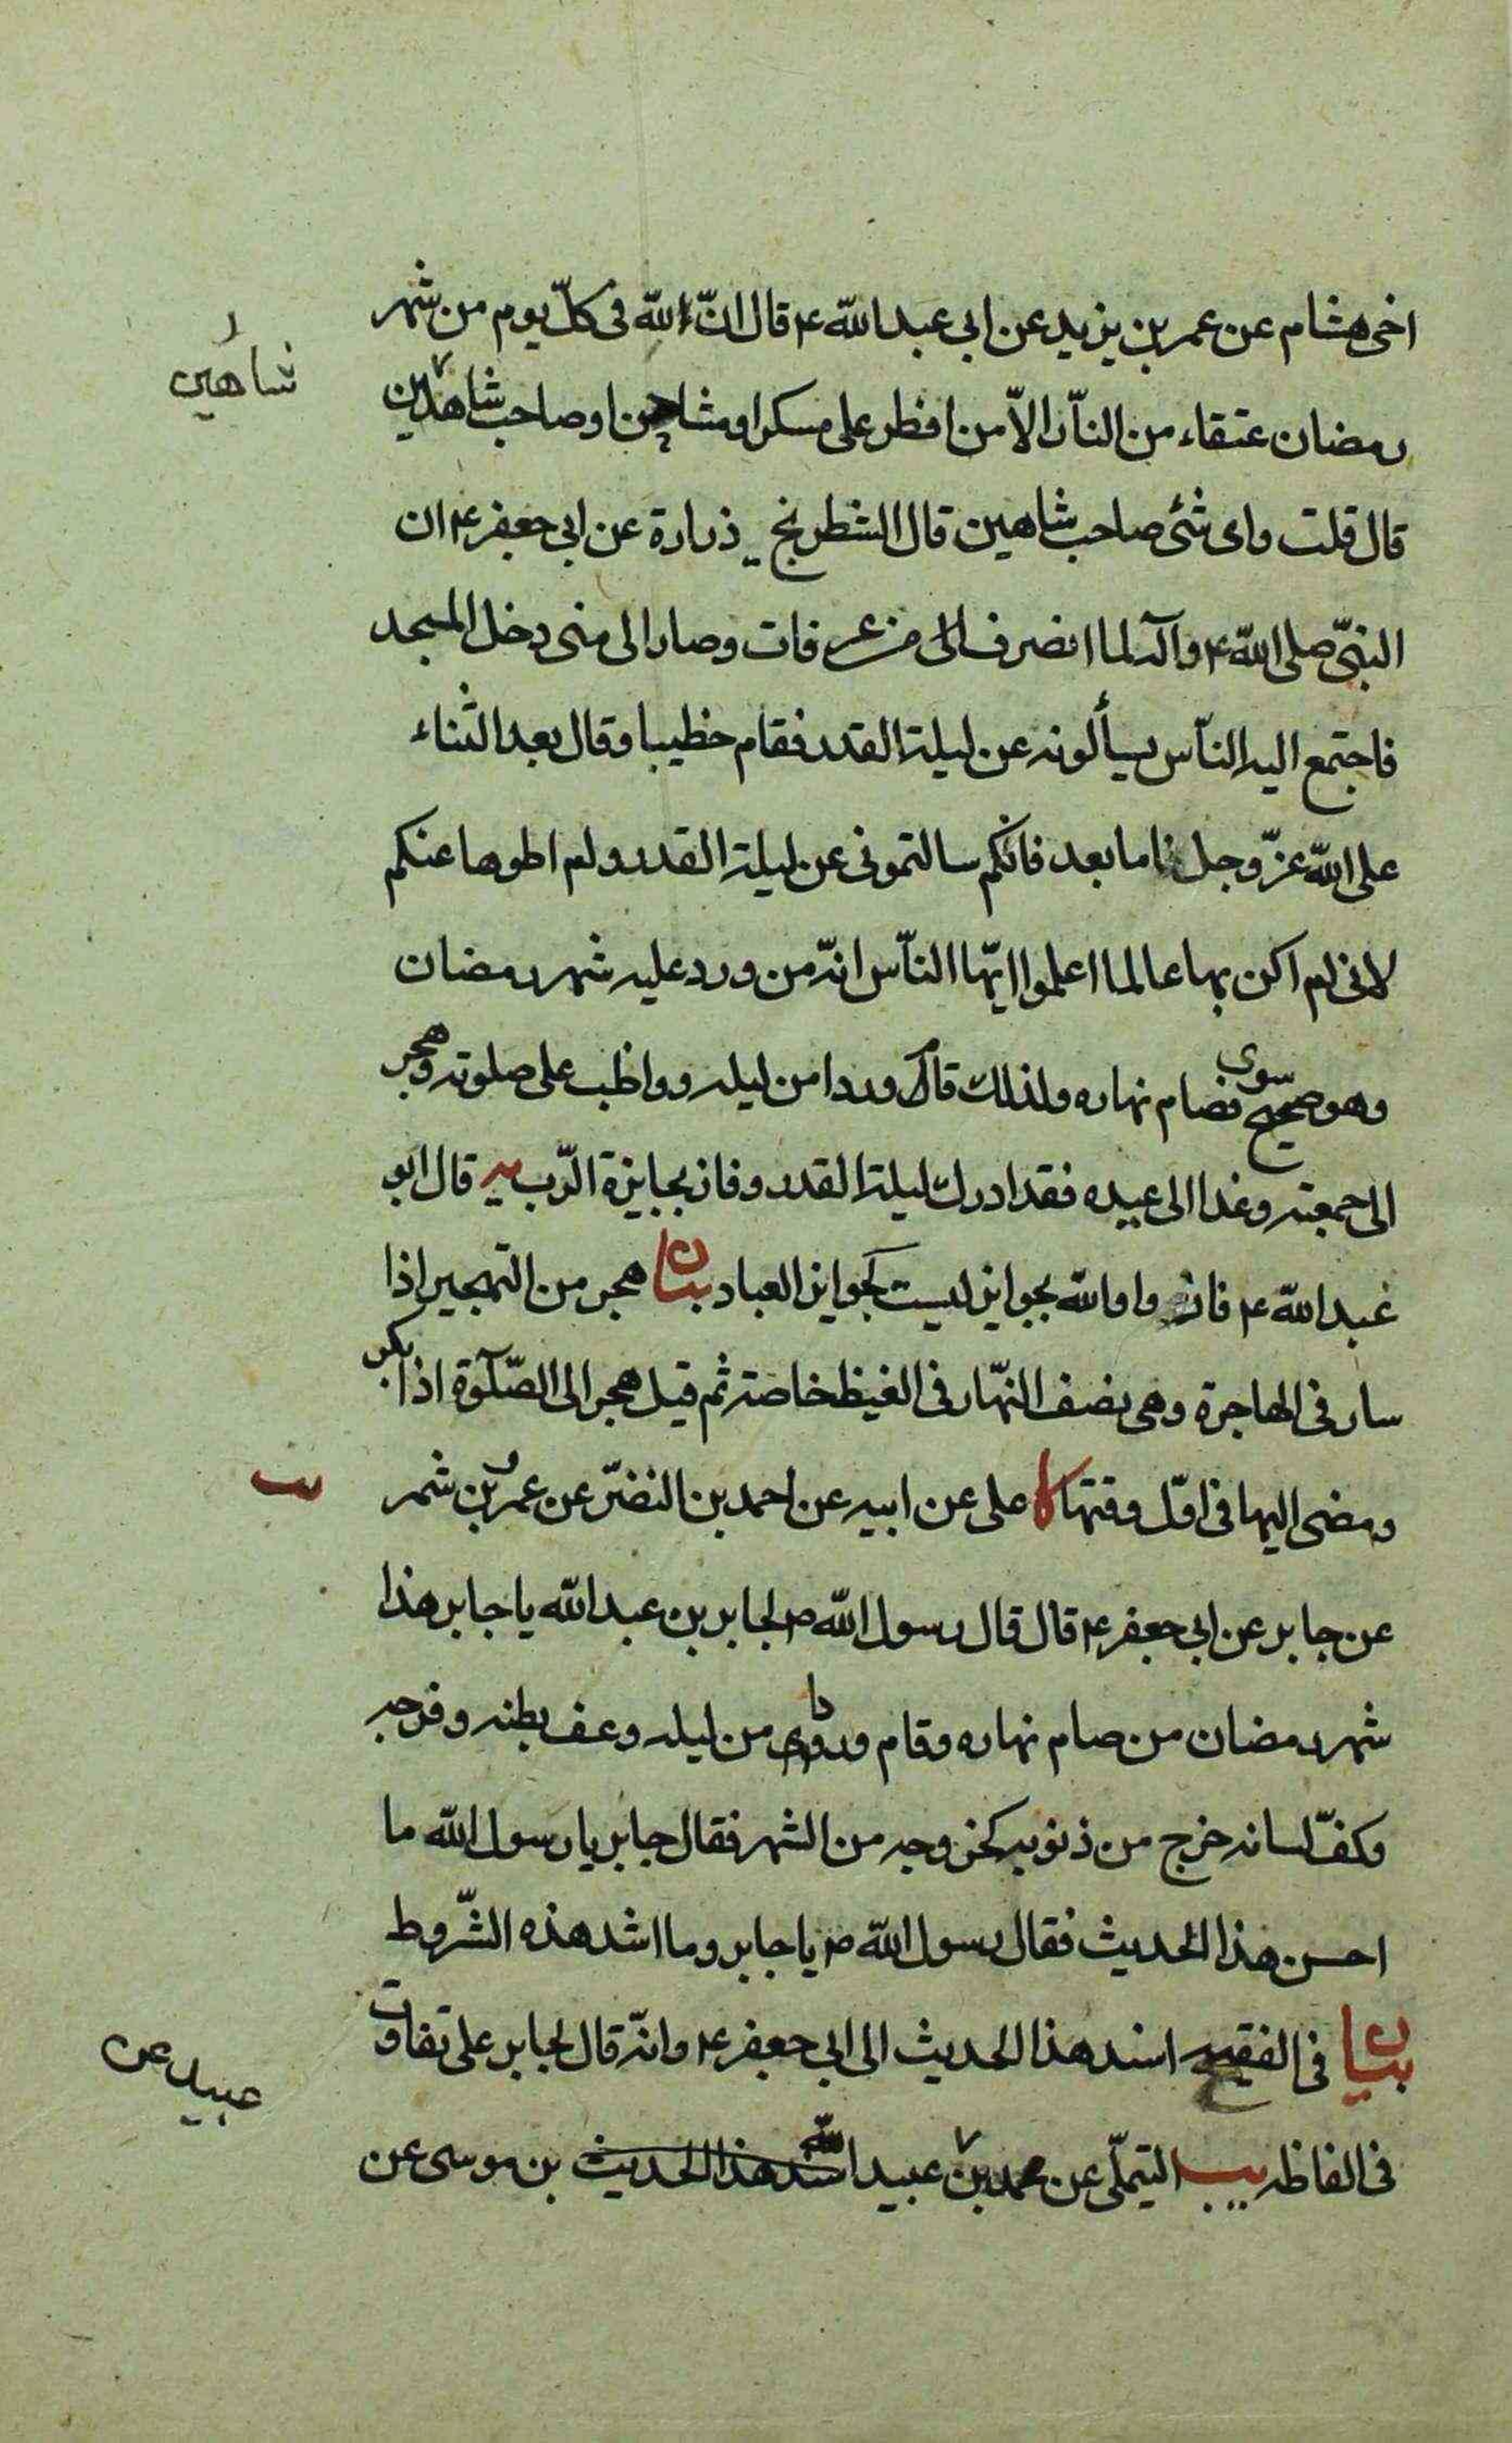 اخى هشام عن عمر بن يزيد عن ابي عبد الله ع قال انّ لله فى كلّ يوم من شهر
شاهين
رمضان عتقاء من النّار الاّ من افطر على مسكر او مشاحن او صاحب شاهين
قال قلت واى شئ صاحب شاهين قال الشطرنج يه زرارة عن ابي جعفر ع ان
النبىّ صلى الله ع وآله لما انصرف من عرفات وصار الى منى دخل المسجد
فاجتمع اليه النّاس يسألونه عن ليلة القدر فقام خطيبا وقال بعد الثناء
على الله عزّ وجل اما بعد فانكم سالتمونى عن ليلة القدر ولم اطوها عنكم
لانى لم اكن بها عالما اعلموا ايّها النّاس انّه من ورد عليه شهر رمضان
وهو صحيح سوى فصام نهاره وقام وردا من ليله وواظب على صلوته وهجر
الى جمعته وغدا الى عيده فقد ادرك ليلة القدر وفاز بجايزة الرّب يه قال ابو
عبد الله ع فازوا والله بجوايز ليست كجوايز العباد بيان هجر من التهجير اذا
سار فى الهاجرة وهى نصف النّهار فى الغيظ خاصته ثم قيل هجر الى الصّلوة اذا بكر
ومضى اليها فى اوّل وقتها كا على عن ابيه عن احمد بن النضر عن عمرو بن شمر
عن جابر عن ابي جعفر ع قال قال رسول الله ص لجابر بن عبد الله يا جابر هذا
شهر رمضان من صام نهاره وقام وردا من ليله وعف بطنه وفرجه
وكفّ لسانه خرج من ذنوبه كخروجه من الشهر فقال جابر يا رسول الله ما
احسن هذا الحديث فقال رسول الله ص يا جابر وما اشد هذه الشّروط
بيان فى الفقيه اسند هذا الحديث الى ابي جعفر ع وانّه قال لجابر على تفاوت
عبيد عن
فى الفاظه يب التيملّى عن محمد بن عبيد الله اسند هذا الحديث بن موسى عن